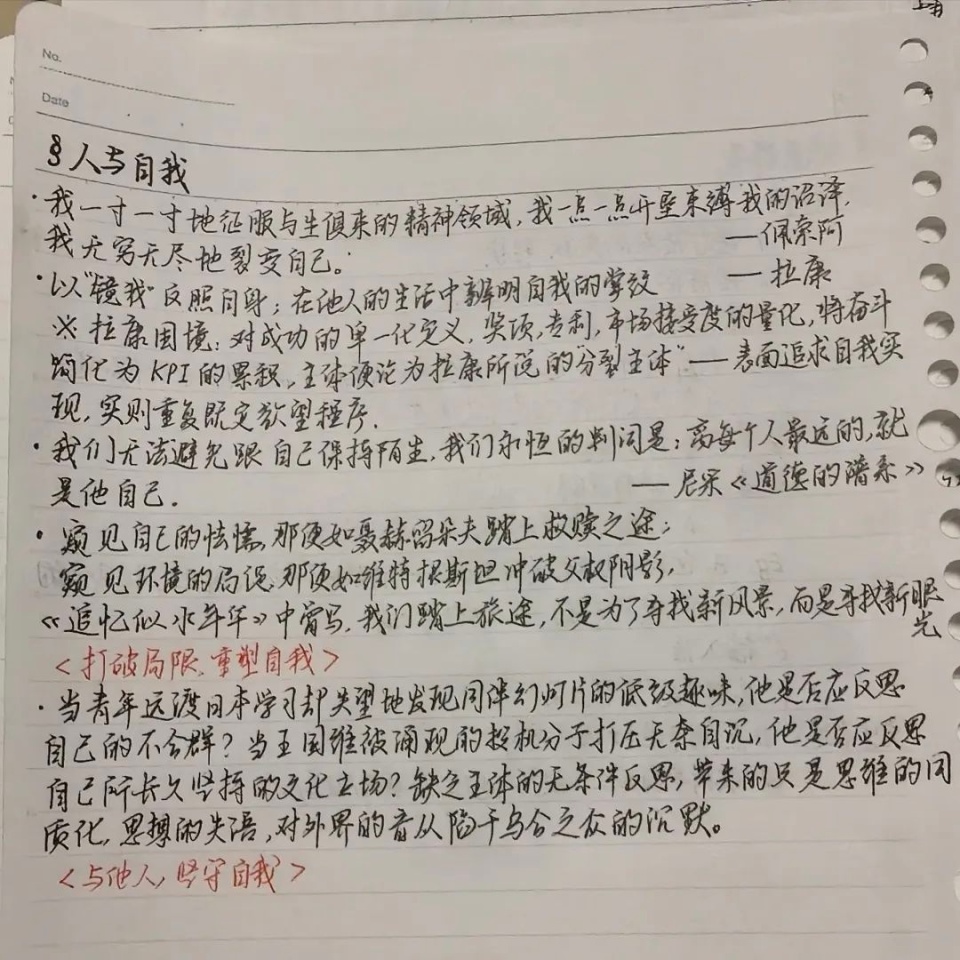 No.
Date
§人与自我
·我一寸一寸地征服与生俱来的精神领域,我一点一点开垦束缚我的沼泽,
我无穷无尽地裂变自己。 ——佩索阿
·以"镜我"反照自身;在他人的生活中辨明自我的掌纹 ——拉康
※拉康困境:对成功的单一化定义,奖项,专利,市场接受度的量化,将奋斗
简化为KPI的累积,主体便沦为拉康所说的"分裂主体"——表面追求自我实
现,实则重复既定欲望程序.
·我们无法避免跟自己保持陌生,我们永恒的判词是:离每个人最远的,就
是他自己. ——尼采《道德的谱系》
·窥见自己的怯懦,那便如聂赫留朵夫踏上救赎之途;
窥见环境的局促,那便如维特根斯坦冲破父权阴影,
《追忆似水年华》中曾写,我们踏上旅途,不是为了寻找新风景,而是寻找新眼
光
<打破局限、重塑自我>
·当青年远渡日本学习却失望地发现同伴幻灯片的低级趣味,他是否应反思
自己的不合群?当王国维被涌现的投机分子打压无奈自沉,他是否应反思
自己所长久坚持的文化立场?缺乏主体的无条件反思,带来的只是思维的同
质化,思想的失语,对外界的盲从陷于乌合之众的沉默。
<与他人,坚守自我>